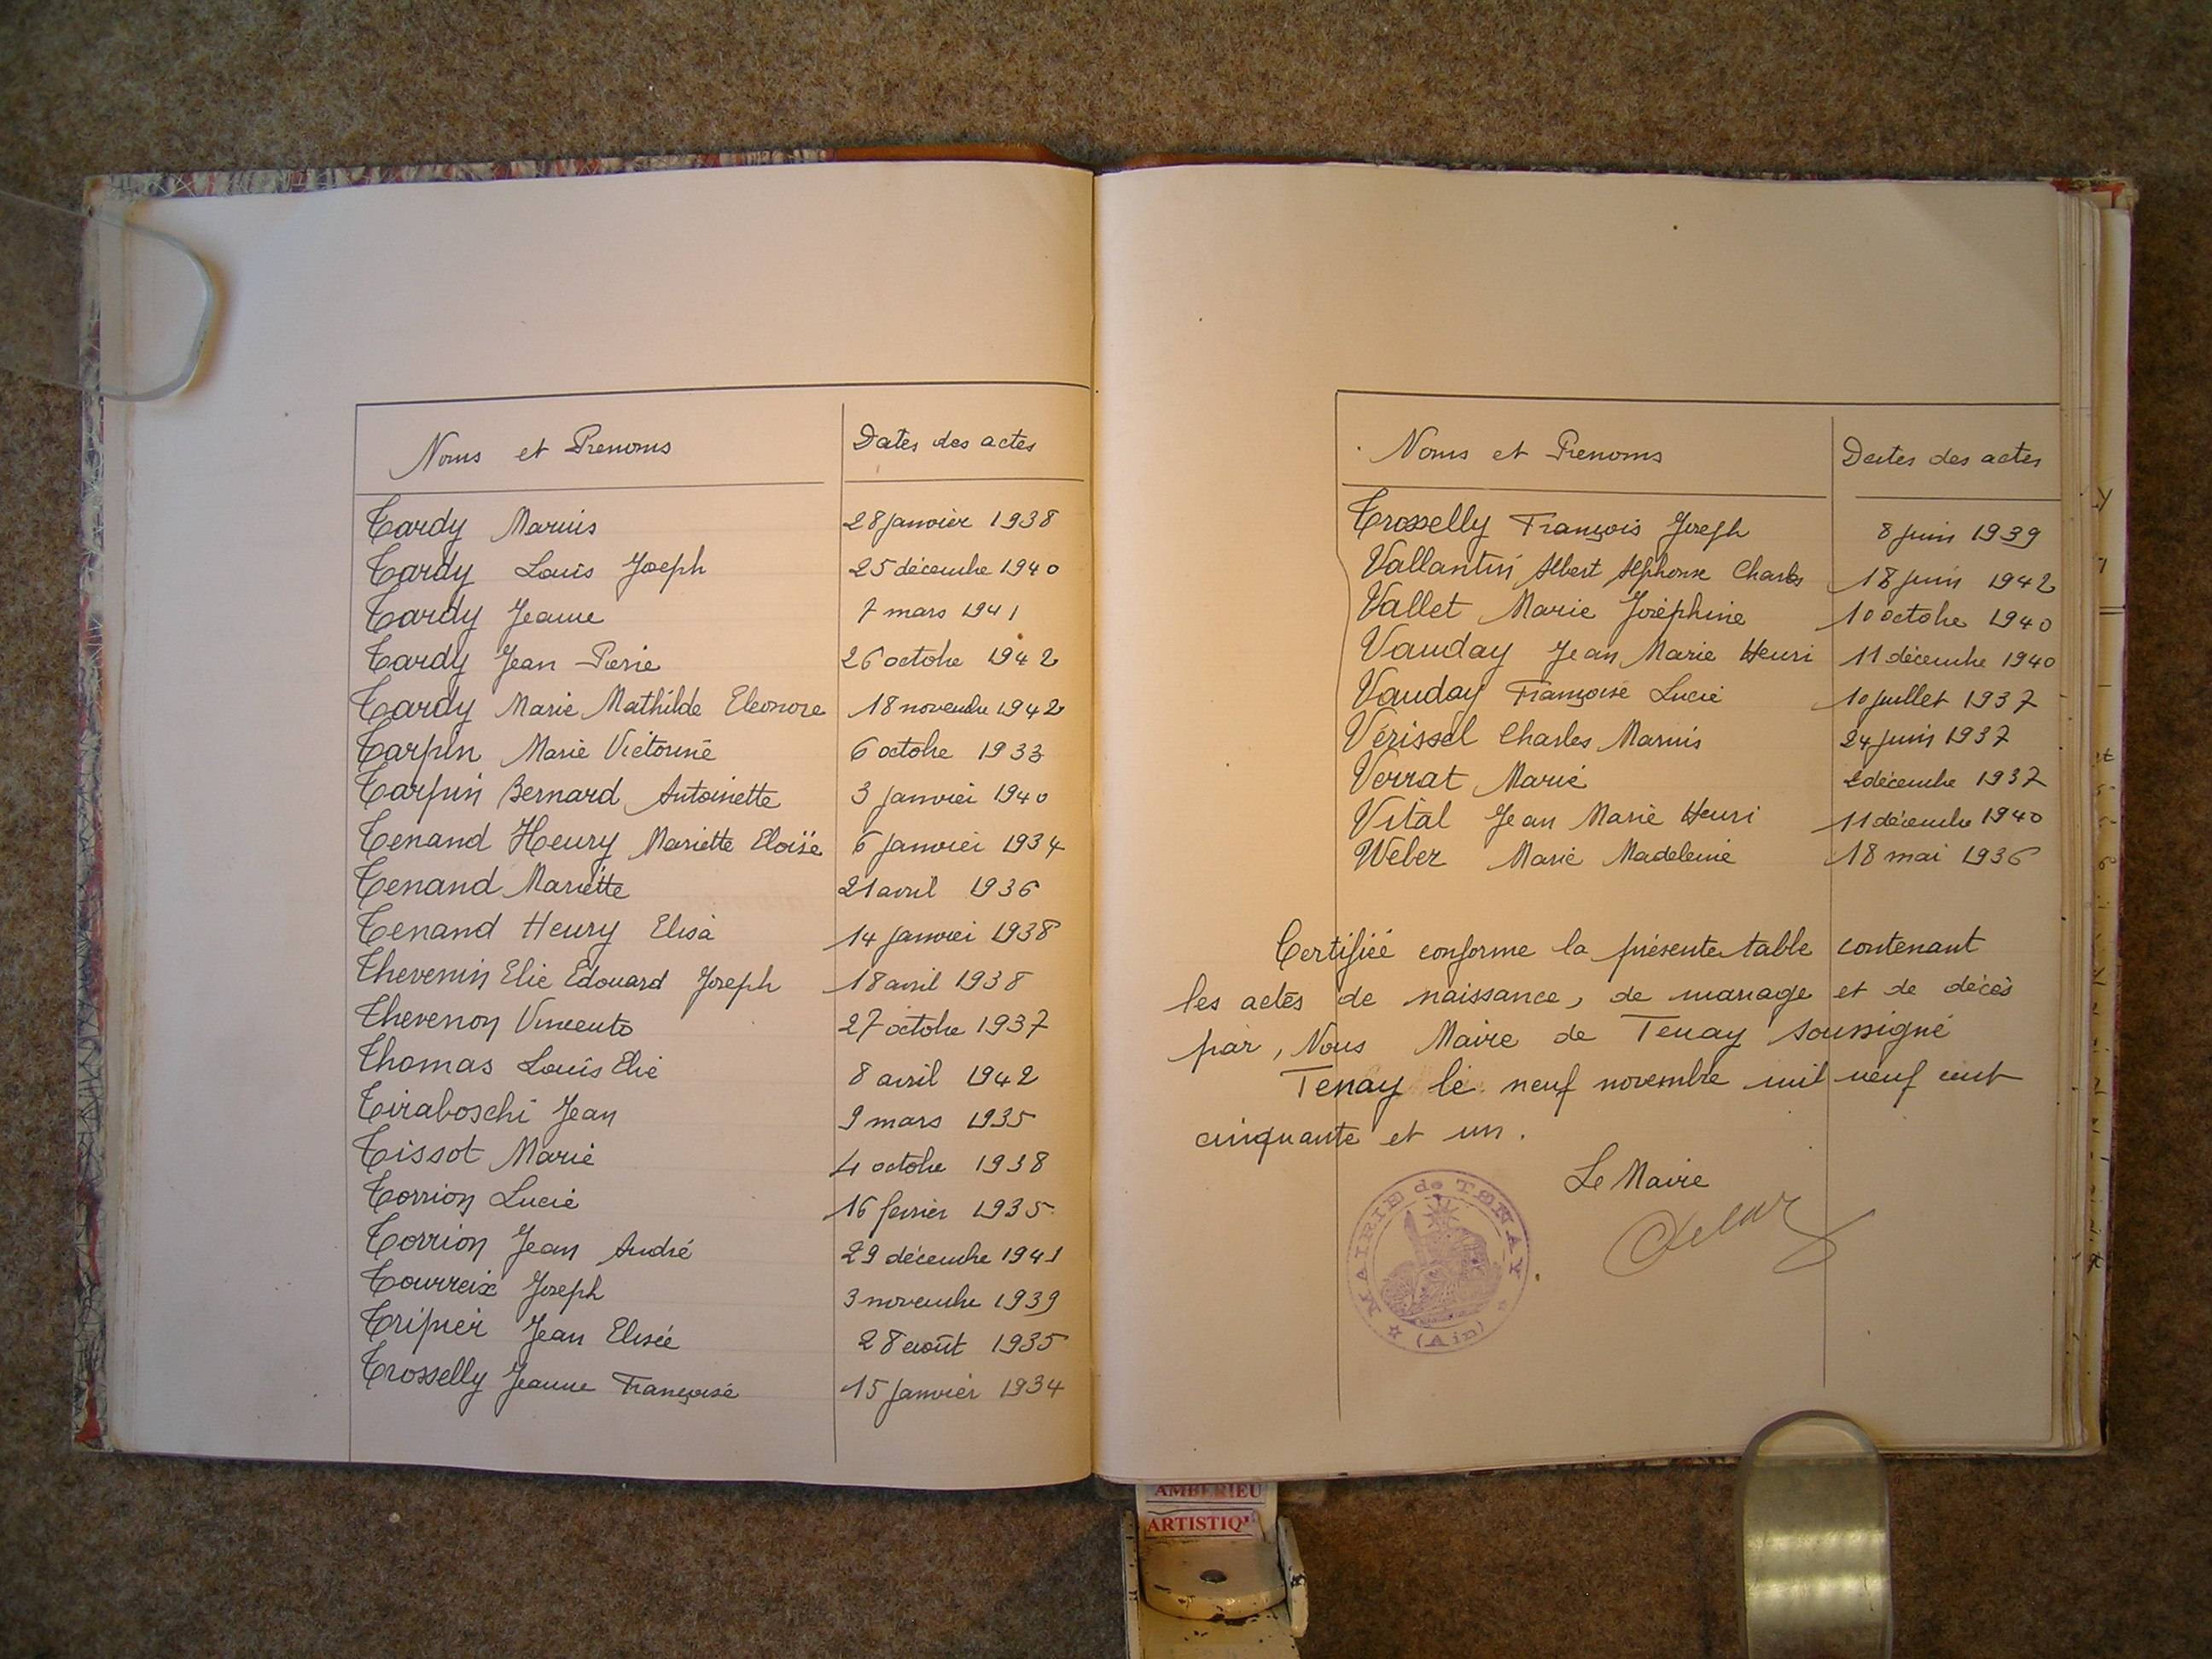 Noms et Prenoms Dates des actes
Tardy Marius 28 janvier 1938
Tardy Louis Joseph 25 décembre 1940
Tardy Jeanne 7 mars 1941
Tardy Jean Pierre 26 octobre 1942
Tardy Marie Mathilde Eleonore 18 novembre 1942
Tarpin Marie Victorine 6 octobre 1933
Tarpin Bernard Antoinette 3 janvier 1940
Tenand Henry Mariette Eloïse 6 janvier 1934
Tenand Mariette 21 avril 1936
Tenand Henry Elisa 14 janvier 1938
Thevenin Elie Edouard Joseph 18 avril 1938
Thevenon Vincente 27 octobre 1937
Thomas Louis Elie 8 avril 1942
Tiraboschi Jean 9 mars 1935
Tissot Marie 4 octobre 1938
Torrion Lucie 16 fevrier 1935
Torrion Jean André 29 décembre 1941
Tourreix Joseph 3 novembre 1939
Tripier Jean Elisée 28 août 1935
Trosselly Jeanne Françoise 15 janvier 1934
Noms et Prenoms Dates des actes
Trosselly François Joseph 8 juin 1939
Vallantin Albert Alphonse Charles 18 juin 1942
Vallet Marie Joséphine 10 octobre 1940
Vauday Jean Marie Henri 11 décembre 1940
Vauday Françoise Lucie 10 juillet 1937
Vérissel Charles Marius 24 juin 1937
Verrat Marie 2 décembre 1937
Vital Jean Marie Henri 11 décembre 1940
Weber Marie Madeleine 18 mai 1936
Certifiée conforme la présente table contenant
les actes de naissance, de mariage et de décès
par, Nous Maire de Tenay soussigné
Tenay le neuf novembre mil neuf cent
cinquante et un.
Le Maire
MAIRIE de TENAY
(Ain)
AMBERIEU
ARTISTIQ